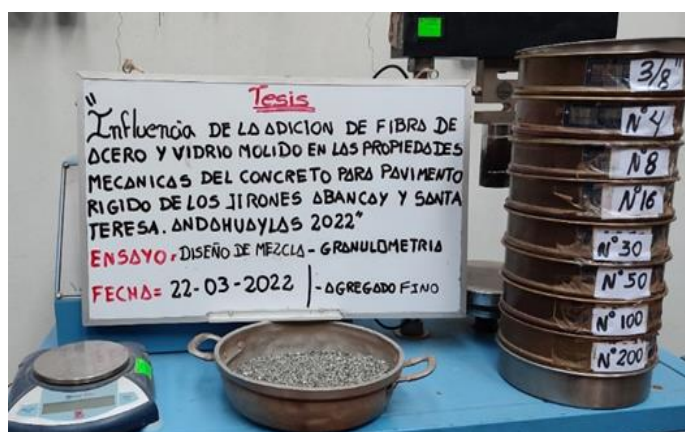 Tesis
"Influencia DE LA ADICION DE FIBRA DE
ACERO Y VIDRIO MOLIDO EN LAS PROPIEDADES
MECANICAS DEL CONCRETO PARA PAVIMENTO
RIGIDO DE LOS JIRONES ABANCAY Y SANTA
TERESA. ANDAHUAYLAS 2022"
ENSAYO: DISEÑO DE MEZCLA - GRANULOMETRIA
FECHA= 22-03-2022 | - AGREGADO FINO
3/8"
N°4
N°8
N°16
N°30
N°50
N°100
N°200